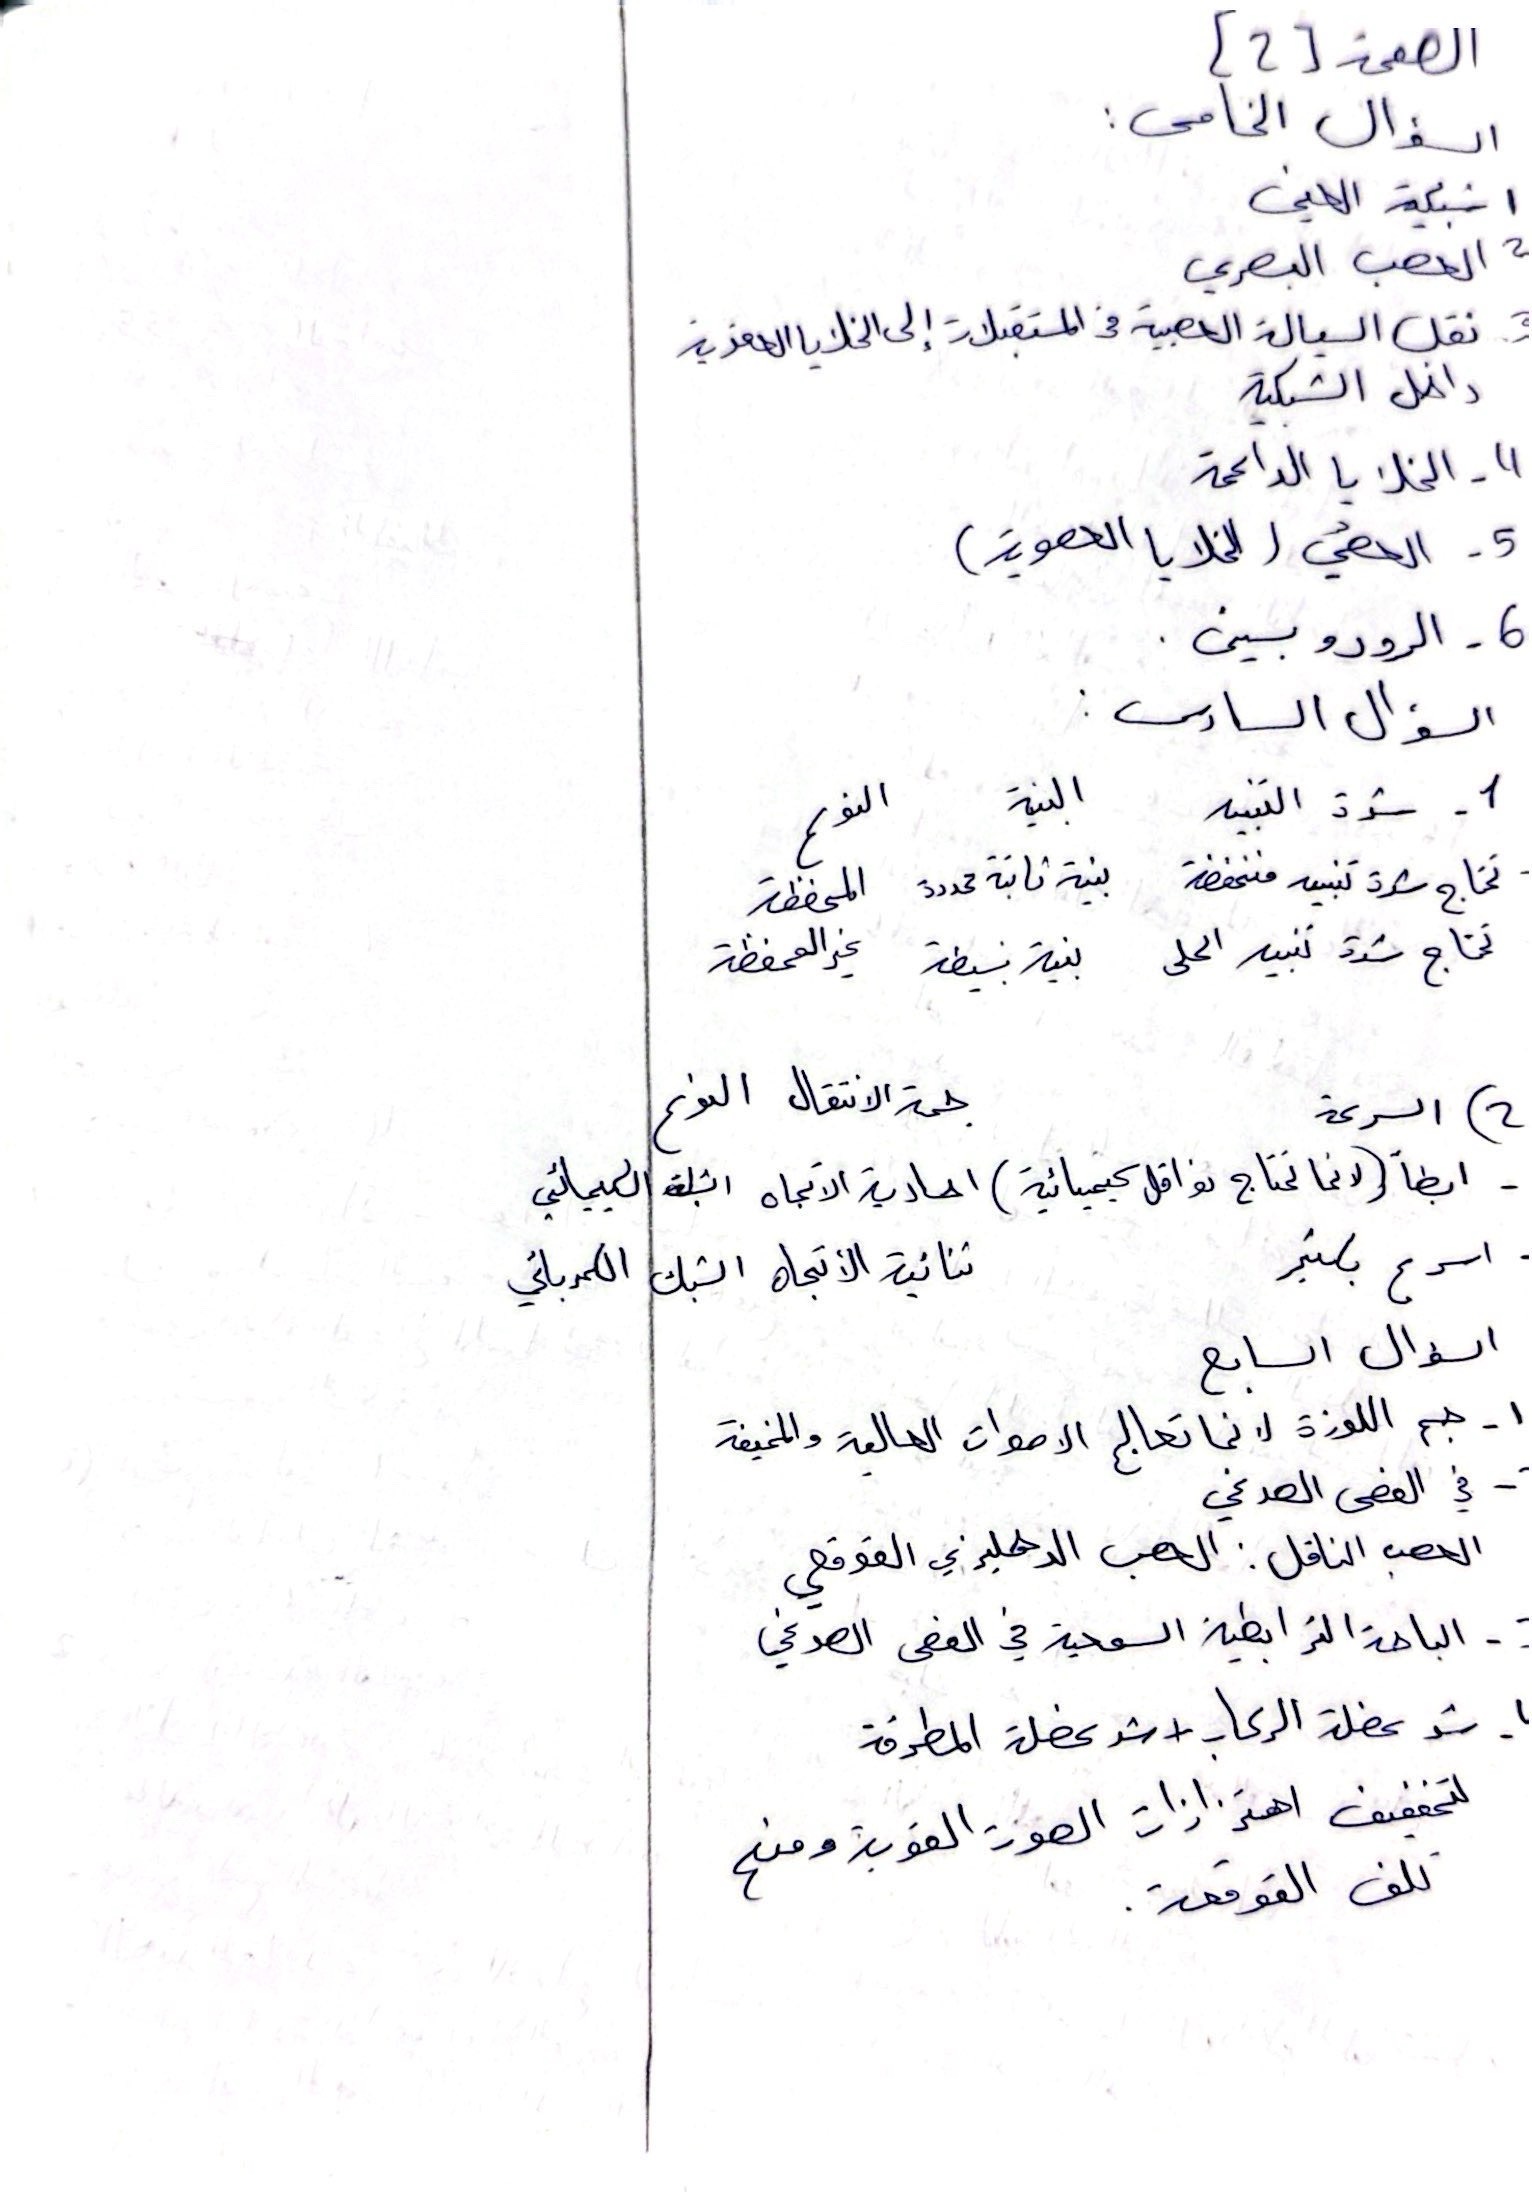 الصفحة [2]
السؤال الخامس :
1 شبكية العين
2 العصب البصري
3. نقل السيالة العصبية من المستقبلات إلى الخلايا العقدية
داخل الشبكية
4 - الخلايا الداعمة
5 - العصي ( الخلايا العصوية )
6 - الرودوبسين .
السؤال السادس :
1 - شدة التنبيه البنية النوع
- تحتاج شدة تنبيه منخفضة بنية ثابتة محددة المحفظة
تحتاج شدة تنبيه اعلى بنية بسيطة غير المحفظة
2) السرعة جهة الانتقال النوع
- ابطأ (لانها تحتاج نواقل كيميائية) احادية الاتجاه الشبك الكيميائي
- اسرع بكثير ثنائية الأتجاه الشبك الكهربائي
السؤال السابع
1 - جسم اللوزة لانها تعالج الاصوات العالية والمخيفة
- في الفص الصدغي
العصب الناقل : العصب الدهليزي القوقعي
3 - الباحة الترابطية السمعية في الفص الصدغي
4 - شد عضلة الركاب + شد عضلة المطرقة
لتخفيف اهتزازات الصوت القوية ومنع
تلف القوقعة .